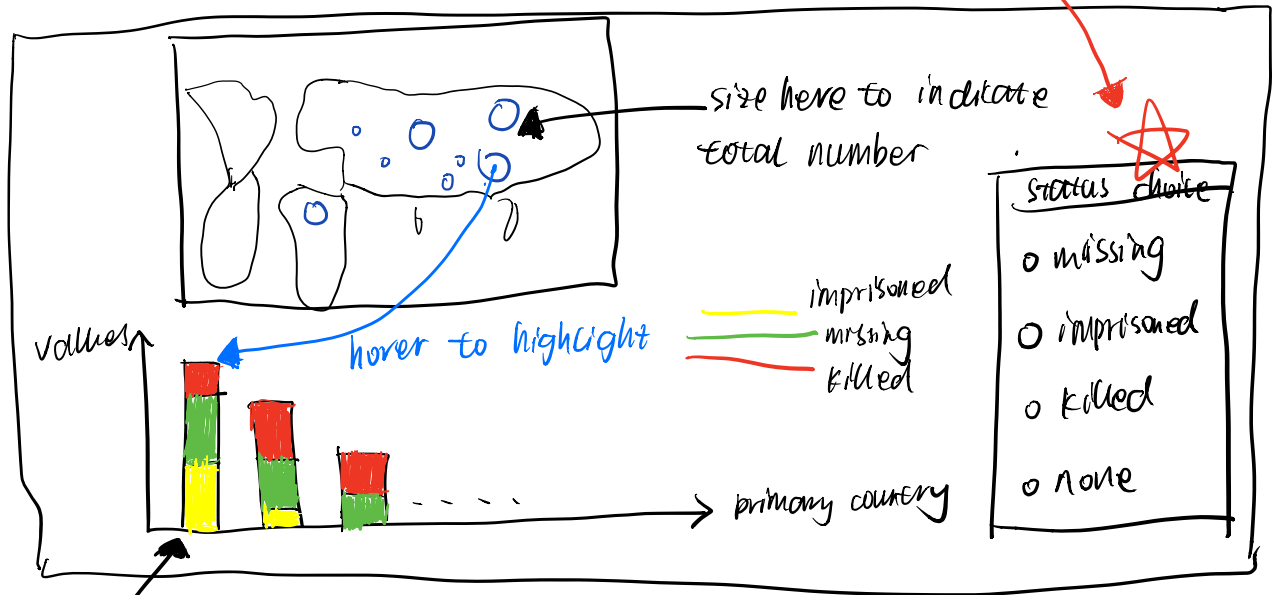 size here to indicate
total number
status choice
missing
imprisoned
killed
none
values
hover to highlight
imprisoned
missing
killed
primary country